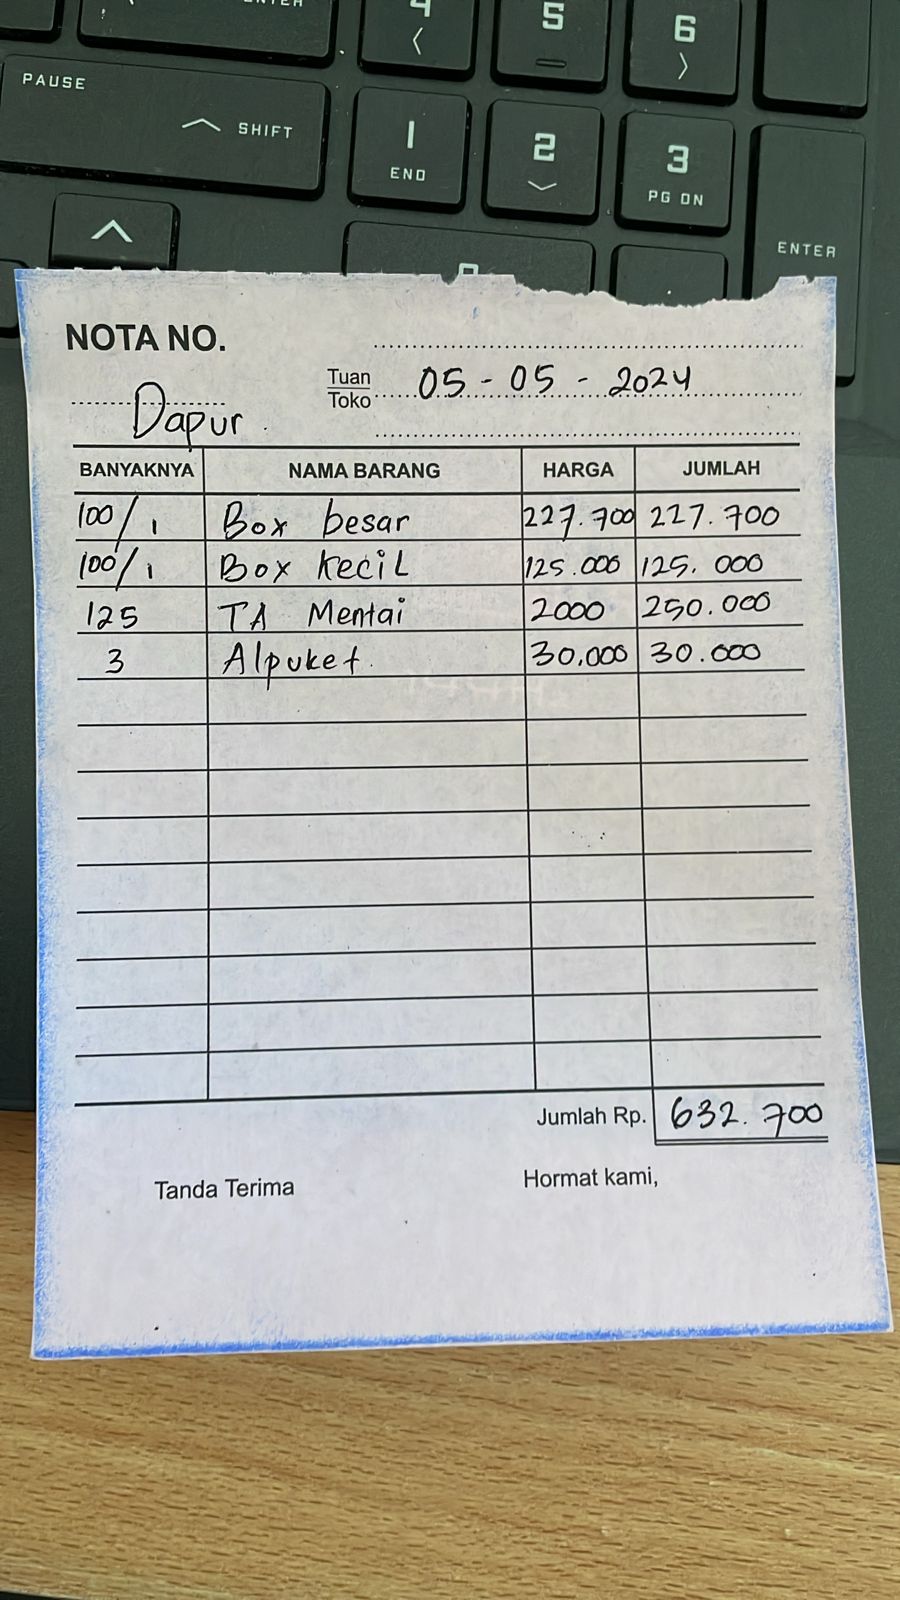 ENTER
4
5
6
PAUSE
SHIFT
1
END
2
3
PG DN
ENTER
NOTA NO.
Tuan
Toko
05 - 05 - 2024
Dapur
BANYAKNYA NAMA BARANG HARGA JUMLAH
100/1 Box besar 227.700 227.700
100/1 Box kecil 125.000 125.000
125 TA Mentai 2000 250.000
3 Alpuket. 30.000 30.000
Jumlah Rp. 632.700
Tanda Terima Hormat kami,